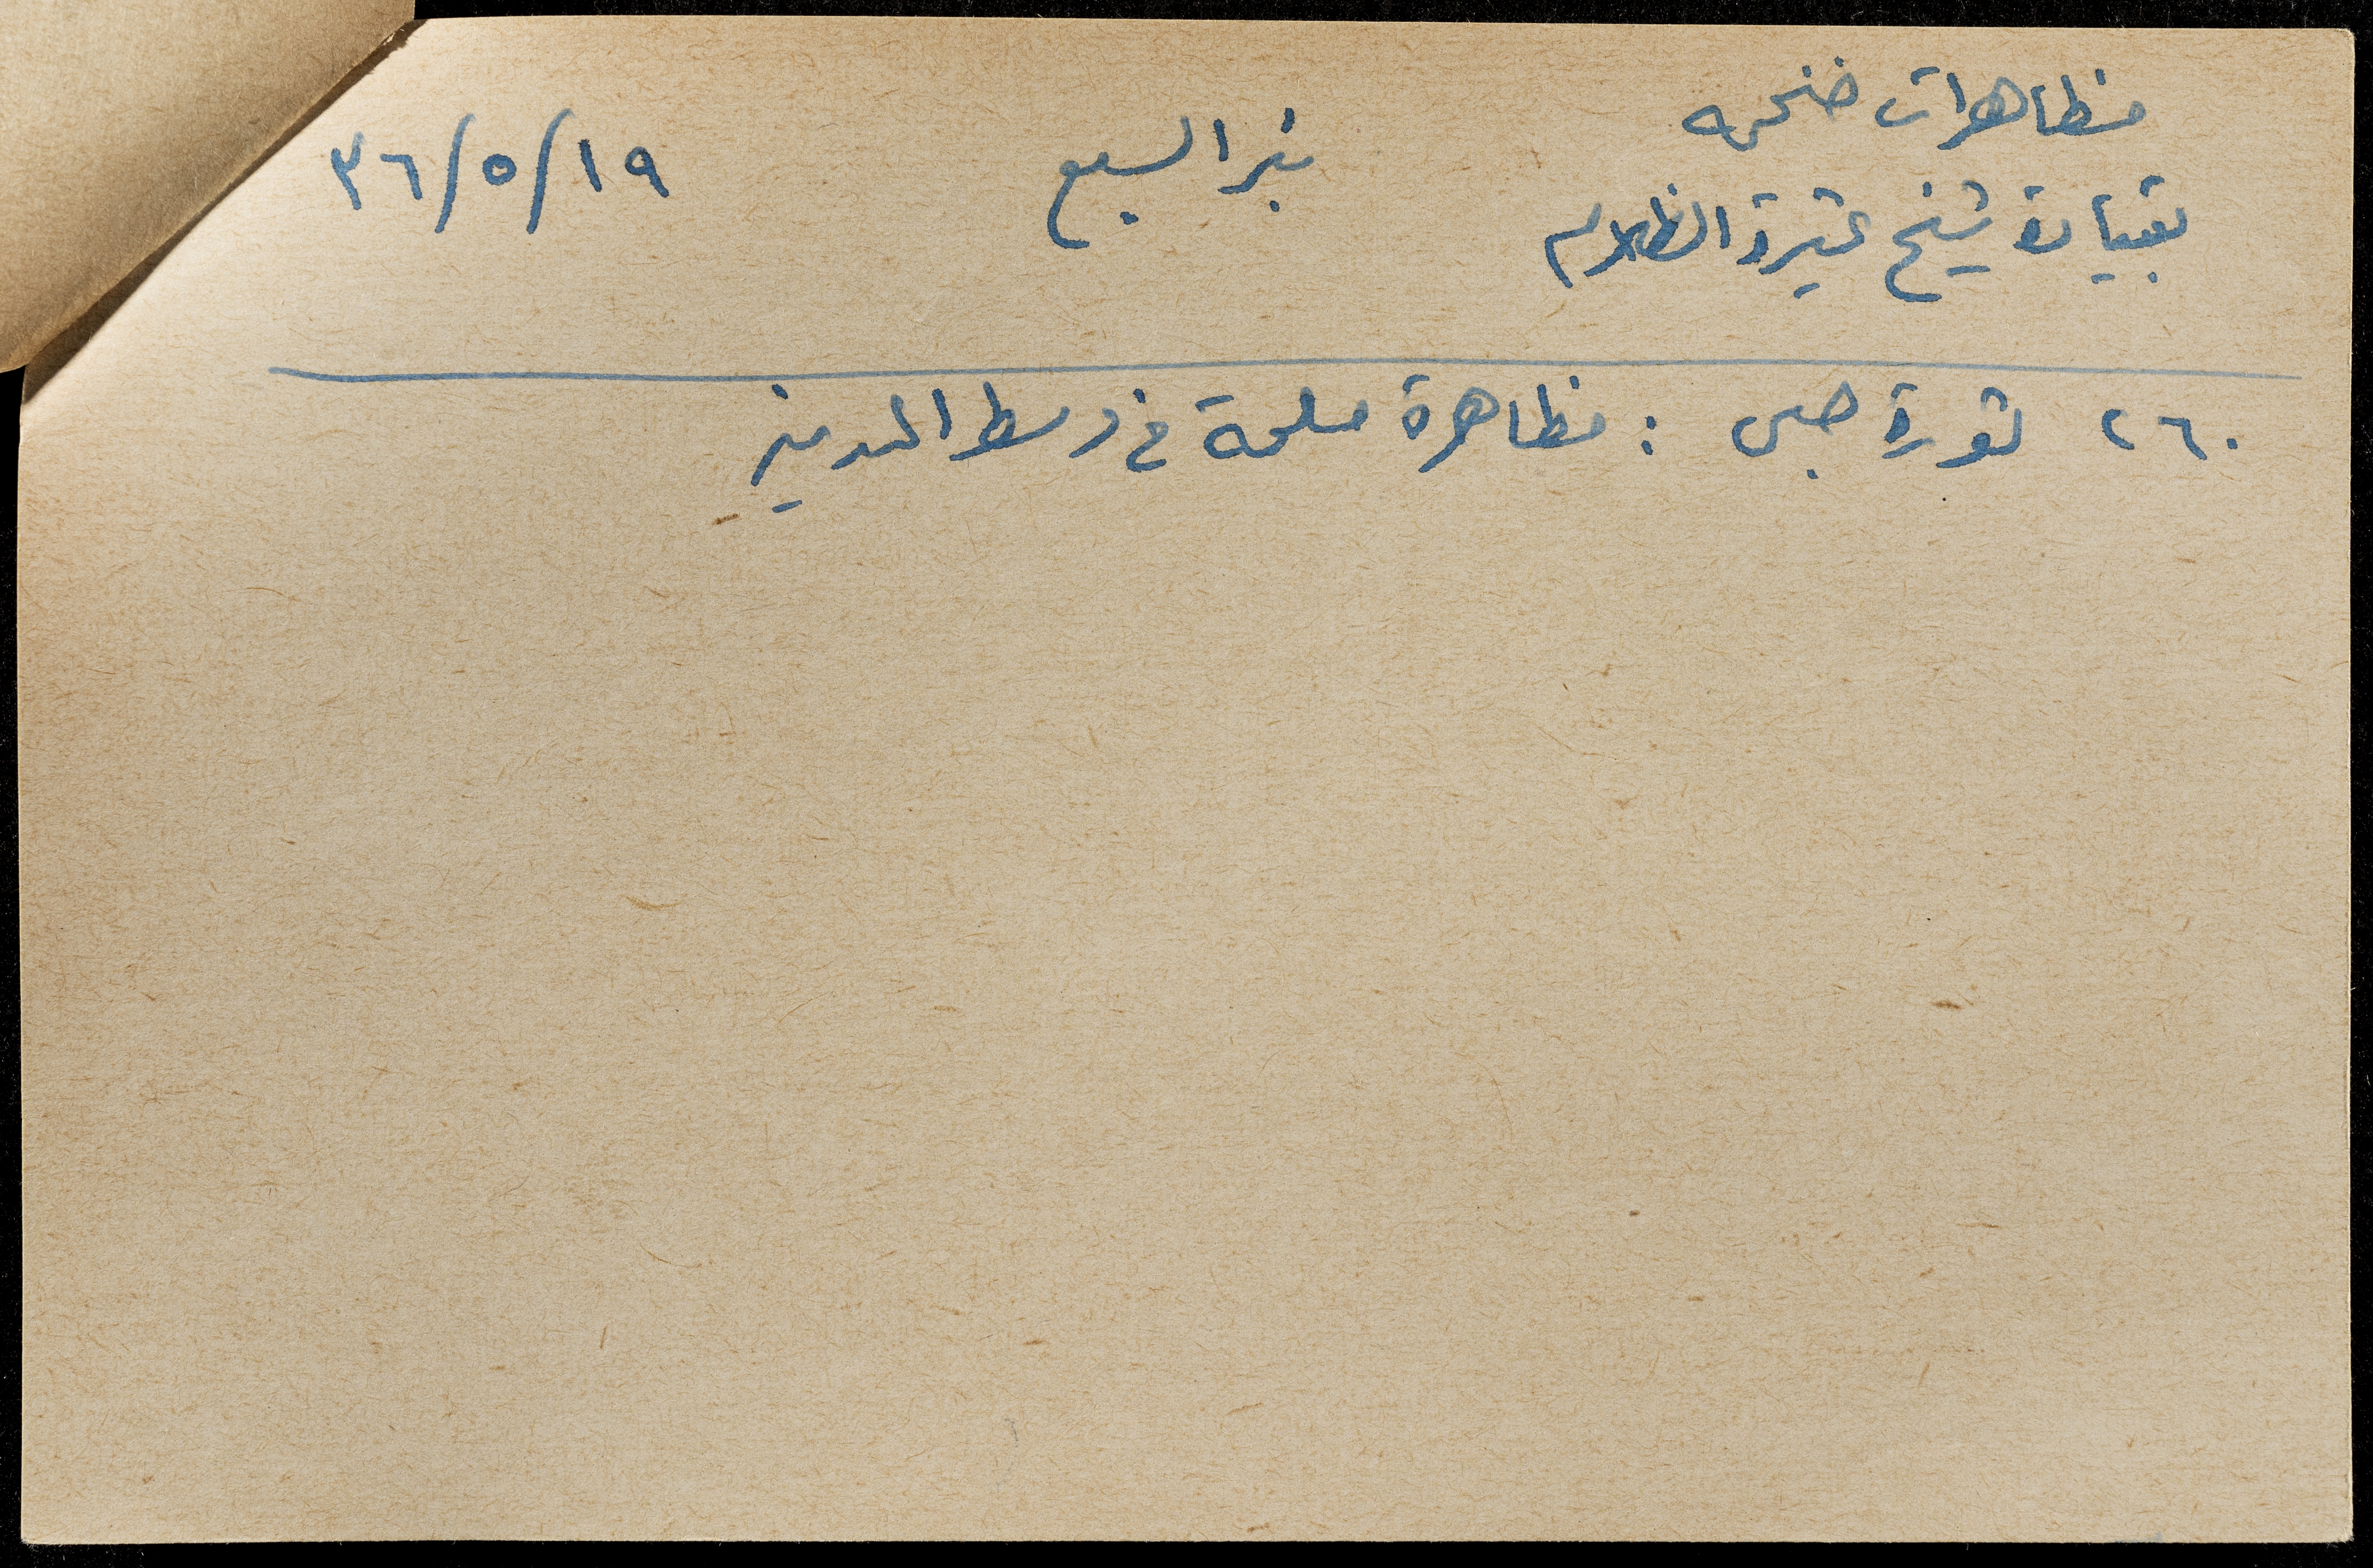 مظاهرات ضخمه
بقيادة شيخ عشيرة الظلام
بئر السبع
١٩/٥/٣٦
٢٦٠ ثورة صبحي : مظاهرة مسلحة في وسط المدينة